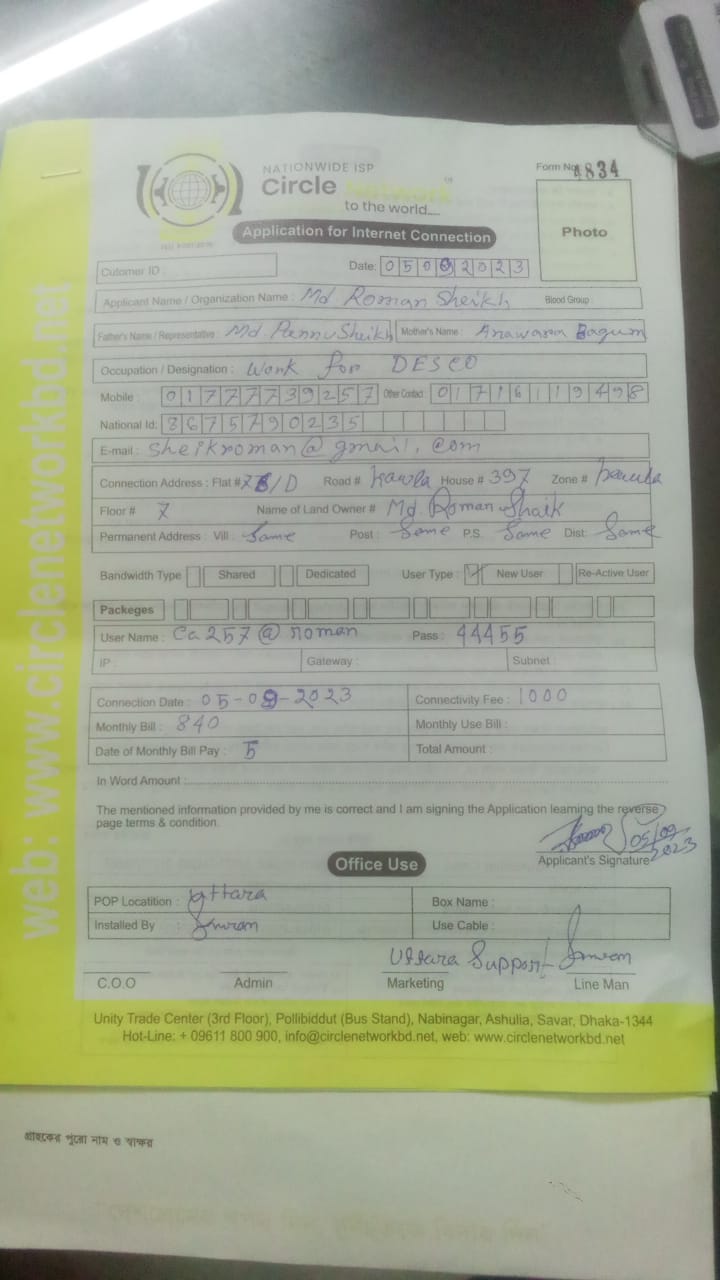 NATIONWIDE ISP
Circle Network
to the world....
Form No 4834
Photo
Application for Internet Connection
Cutomer ID : Date: 05092023
Applicant Name / Organization Name : Md Roman Sheikh Blood Group :
Father's Name / Representative : Md Pannu Sheikh Mother's Name : Anawara Bagum
Occupation / Designation : Work for DESCO
Mobile : 01777739257 Other Contact : 01716119498
National Id: 8675790235
E-mail : sheikroman@gmail.com
Connection Address : Flat # /D Road # Kawla House # 397 Zone # Kawla
Floor # 7 Name of Land Owner # Md. Roman Shaik
Permanent Address : Vill : Same Post : Same P.S. Same Dist: Same
Bandwidth Type Shared Dedicated User Type : New User Re-Active User
Packeges
User Name : Ca257@roman Pass : 44455
IP : Gateway : Subnet :
Connection Date : 05-09-2023 Connectivity Fee : 1000
Monthly Bill : 840 Monthly Use Bill :
Date of Monthly Bill Pay : 5 Total Amount :
In Word Amount :
The mentioned information provided by me is correct and I am signing the Application learning the reverse
page terms & condition.
05/09
2023
Applicant's Signature
Office Use
POP Locatition : Uttara Box Name :
Installed By : Use Cable :
Uttara Support
C.O.O Admin Marketing Line Man
Unity Trade Center (3rd Floor), Pollibiddut (Bus Stand), Nabinagar, Ashulia, Savar, Dhaka-1344
Hot-Line: + 09611 800 900, info@circlenetworkbd.net, web: www.circlenetworkbd.net
web: www.circlenetworkbd.net
গ্রাহকের পুরো নাম ও স্বাক্ষর